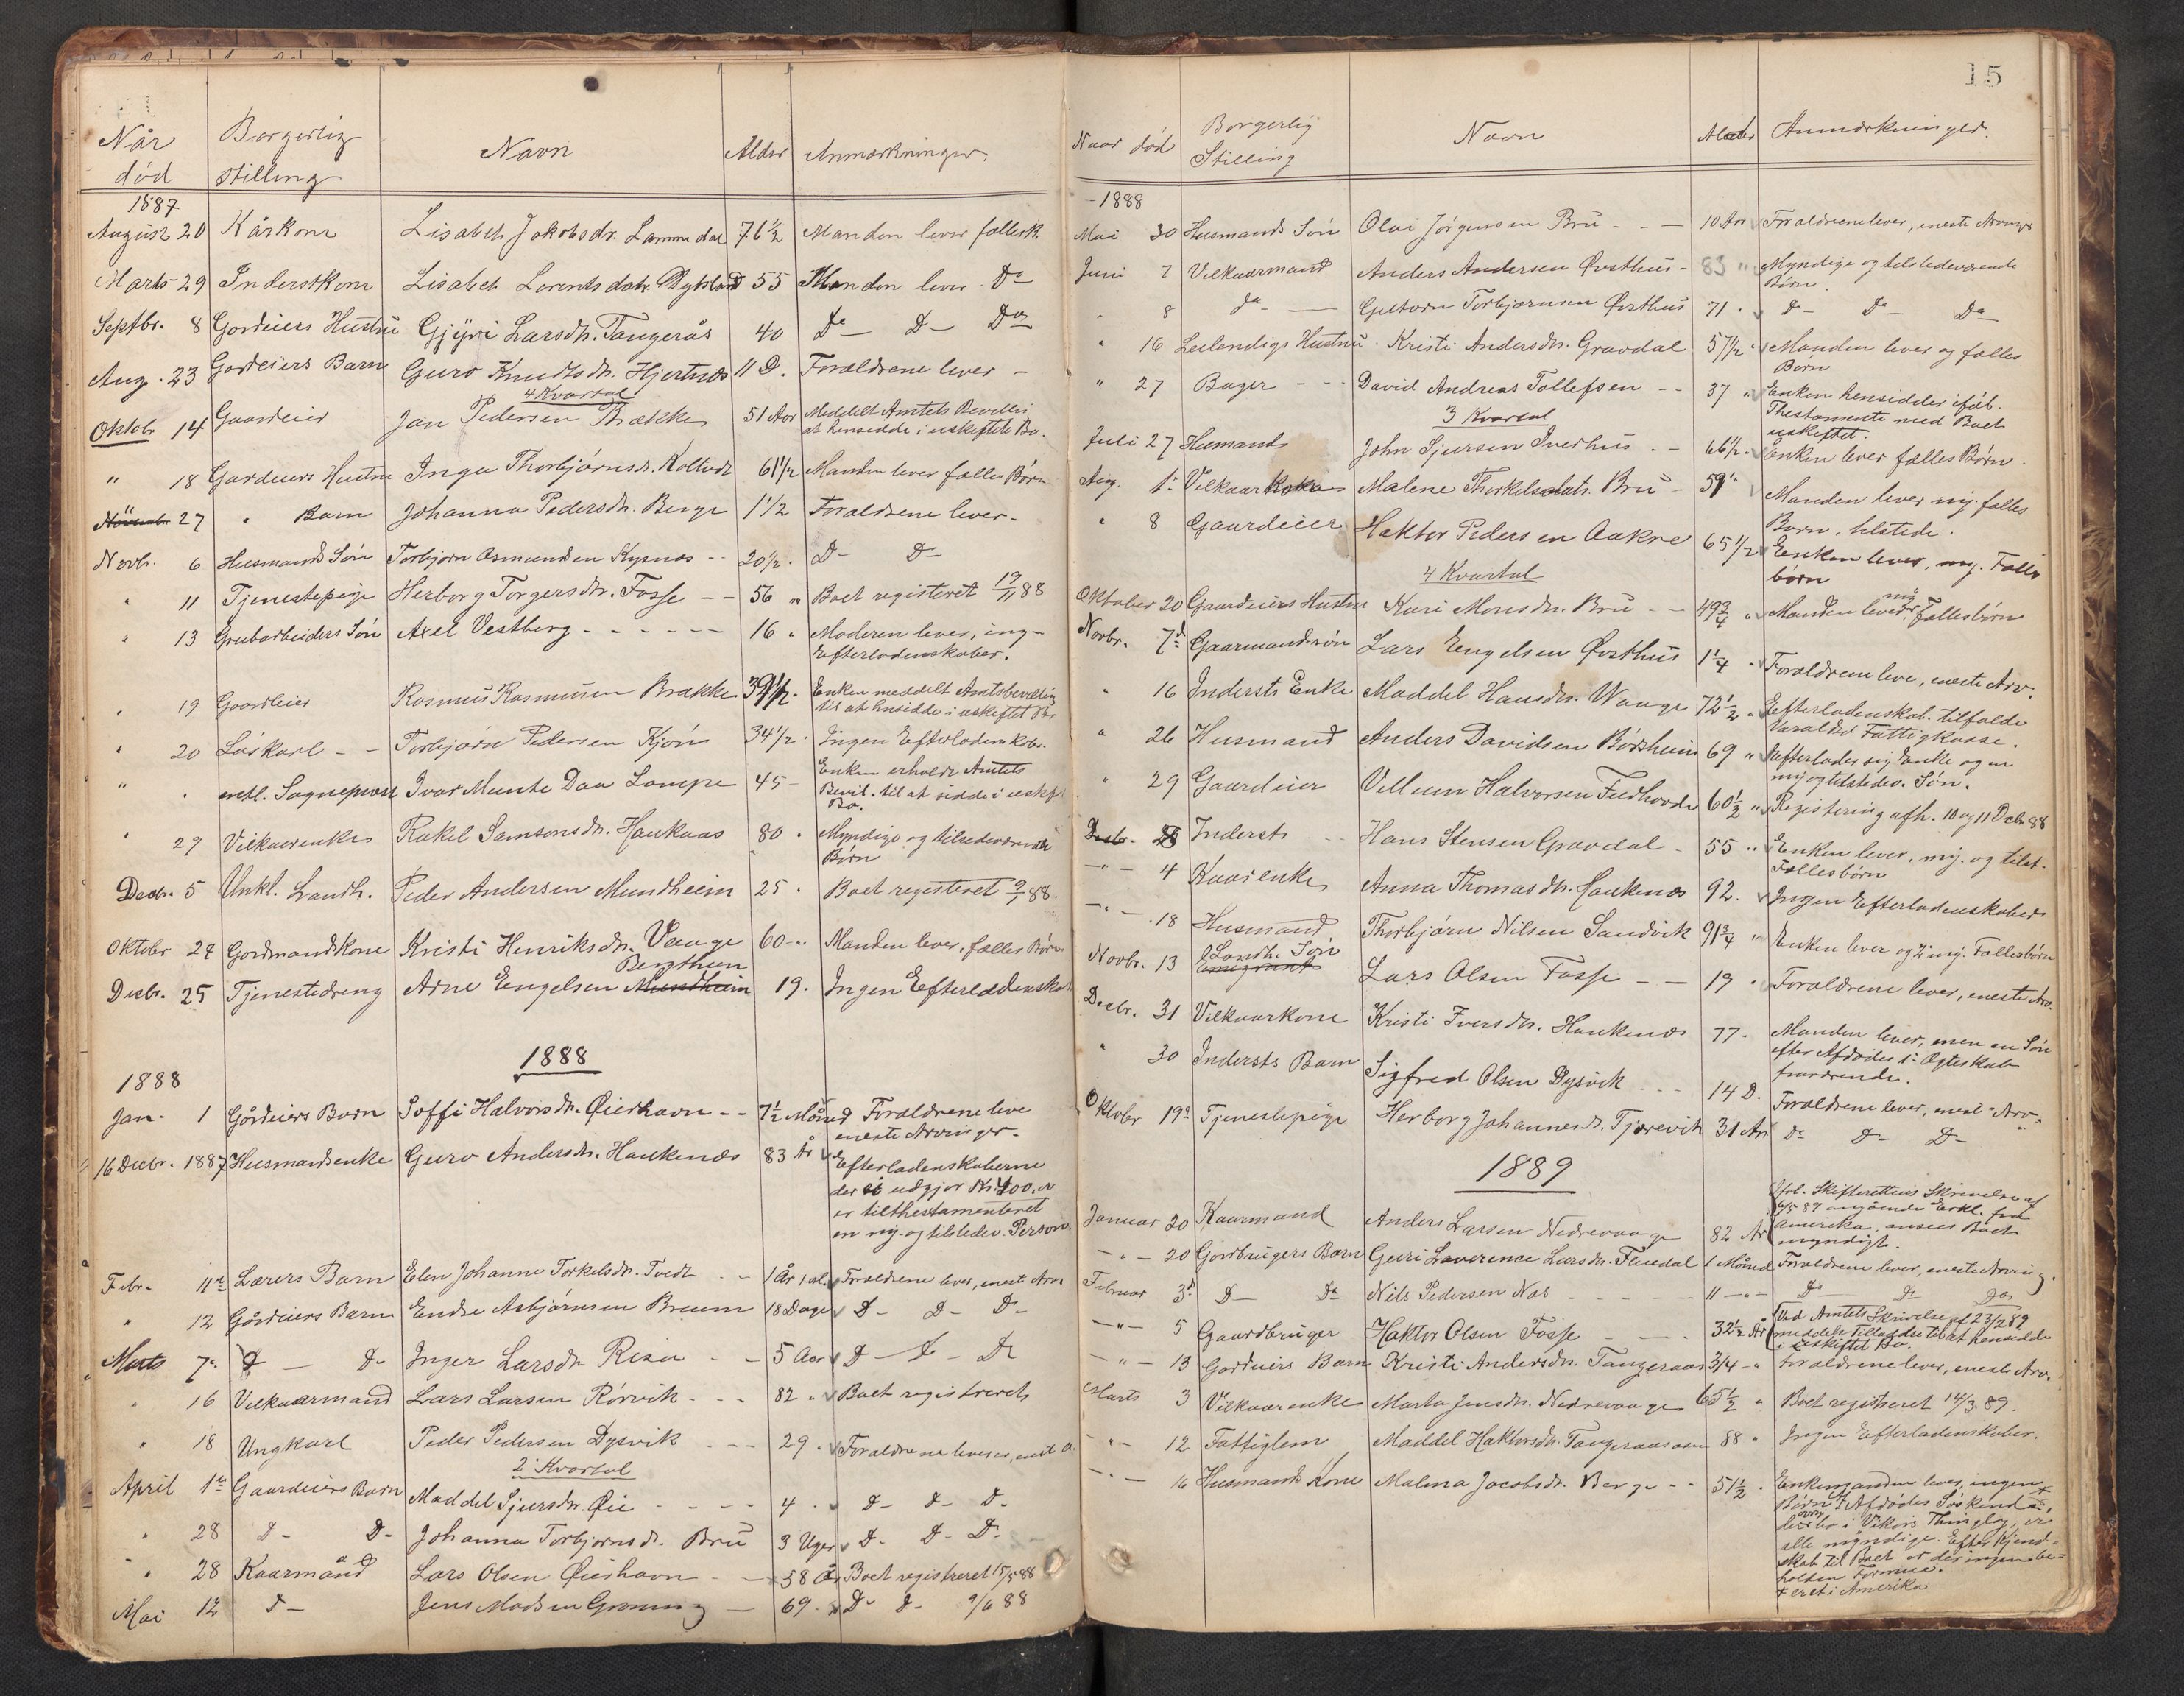 Når død
Borgerlig stilling
Navn
Alder
Anmærkninger.
1887
August 20 Kårkone Lisabeth Jakobsdr. Lammedal 76 1/2 Manden lever fællesk.
Marts 29 Inderstkone Lisabet Lorentsdatr. 55 Manden lever Do
Septbr. 8 Gordeiers Hustru Gjyri Larsdtr. Tangerås 40 Do D- Do
Aug. 23 Gordeiers Barn Guro Knudtsdr. Hjertnæs 11 D. Forældrene lever -
4 Kvartal
Oktob. 14 Gaardeier Jan Pedersen Brække 51 Aar Meddelt Amtets Bevilling
at hensidde i uskiftete Bo.
" 18 Gardeiers Hustru Inga Thorbjørnsdr. 61 1/2 Manden lever fælles Børn
27 " Barn Johanna Pedersdr. Berge 1 1/2 Forældrene lever -
Novbr. 6 Husmands Søn Torbjørn Asmundsen Kysnæs -- 20 1/2 . D- D-
" 11 Tjenestepige Herborg Torgersdr. Fosse -- 56 " Boet registeret 19/11 88
" 13 Grubarbeiders Søn Axel Vestberg ------ 16 " Moderen lever, ing-
Efterladenskaber.
" 19 Gaardeier Rasmus Rasmussen Brække 39 1/2 . Enken meddelt Amtsbevilling
til at hensidde i uskiftet Bo
" 20 Løskarl -- Torbjørn Pedersen Kjøn 34 1/2 . Ingen Efterladenskbr.
" " Sognepræst Ivar Munte Daa Lampe 45 - Enken erholdt Amtets
Bevil. til at sidde i uskift
Bo.
" 29 Vilkaarenke Rakel Samsonsdr. Haukaas 80 . Myndige og tilstedeværende
Børn
Decbr. 5 Unkl. Landh. Peder Andersen Mundheim 25 . Boet registeret 9/1 88.
Oktobr 24 Gordmandskone Kristi Henriksdr. Vaage 60 -" Manden lever, fælles Børn.
Bergthun
Decbr. 25 Tjenestedreng Arne Engelsen Mundheim 19. Ingen Efterladenska
1888
1888
Jan. 1 Gårdeiers Barn Soffi Halvorsdr. Øierhavn -- 7 1/2 Måned Forældrene live
eneste Arvinger.
16 Decbr. 1887 Husmandsenke Guro Andersdr. Haukenæs 83 År Efterladenskaberne
der udgjør Kr. 400, er
er tilthestamenteret
en myg. og tilstedev. Person.
Febr. 11te Lærers Barn Elen Johanne Torkelsdr. Tvedt -- 1 År Forældrene lever, enest Arv.
" 12 Gårdeiers Barn Endre Asbjørnsen 18 Dage D- D- D-
Marts 7de D- D- Inger Larsdr. -- 5 Aar D- D- D-
" 16 Vilkaarmand Lars Larsen Rørvik --- 82 " Boet registreret
" 18 Ungkarl Peder Pedersen Dysvik --- 29 . Forældrene lever,
2 Kvartal
April 1te Gaardeiers Barn Maddel Sjursdr. Øie ---- 4 . D- D- D-
" 28 D- D- Johanna Torbjørnsdr. Bru 3 Uger D- D- D-
" 28 Kaarmand Lars Olsen Øierhavn -- 58 År Boet registreret 15/5 88
Mai 12 D- Jens Madsen Grøning - 69 . D- D- 9/6 88
15
Naar død
Borgerlig Stilling
Navn
Alder
Anmærkninger.
1888
Mai 30 Husmands Søn Olai Jørgensen Bru --- 10 Aar Forældrene lever, eneste Arvinger
Juni 7 Vilkaarmand Anders Andersen Østhus - 83 " Myndige og tilstedeværende
Børn.
" 8 do -- Torbjørnsen Østhus 71 . D- D- Do
" 16 Leilendigs Hustru Kristi Andersdr. Gravdal 57 1/2 . Manden lever og fælles
Børn
" 27 Bager --- David Andreas Tollefsen -- 37 . Enken hensidder ifølg.
Thestamente med Boet
uskiftet.
3 Kvartal
Juli 27 Husmand John Sjursen Iverhus -- 66 1/2 . Enken lever fælles Børn.
Aug. 1te Vilkaarkone Malene Thorkelsdatr. Bru - 59 " Manden lever myg. fælles
Børn, tilstede.
" 8 Gaardeier Haktor Pedersen Aakre 65 1/2 Enken lever, myg. Fælles
børn
4 Kvartal
Oktober 20 Gaardeiers Hustru Kari Monsdr. Bru -- 49 3/4 " Manden lever, myg. Fællesbørn
Novbr. 7de Gaarmandssøn Lars Engelsen Østhus 1 1/4 " Forældrene leve, eneste Arv.
" 16 Indersts Enke Maddel Hansdr. Waage 72 1/2 " Efterladenskab. tilfalde
Varaldsø Fattigkasse.
" 26 Husmand Anders Davidsen Børsheim 69 " efterlader sig Enke og en
myg og tilstedev. Søn.
" 29 Gaardeier Villum Halvorsen 60 1/2 " Registering afh. 10 og 11 Decbr 88
Decb. 28 Inderst -- Hans Stensen Gravdal - 55 " Enken lever, myg. og tilst.
Fællesbørn
-"- 4 Kaarenke Anna Thomasdr. Haukenæs 92. Ingen Efterladenskaber
-"- 18 Husmand Thorbjørn Nilsen Sandvik 91 3/4 " Enken lever og 2 myg. Fællesbørn
Landh. Søn
Novbr. 13 Emegrant Lars Olsen Fosse -- 19 " Forældrene lever, eneste Arv.
Decbr. 31 Vilkaarkone Kristi Iversdr. Haukenæs 77 - Manden lever, men en Søn
efter Afdødes 1te Egteskab
fraværende.
" 30 Indersts Barn Sigfred Olsen Dysvik --- 14 D. Forældrene lever, enest Arv.
Oktober 19de Tjenestepige Herborg Johannesdr. Tjørevik 31 År Do D- D-
1889
Januar 20 Kaarmand Anders Larsen Nedrevaage 82 År iføl. Skifterettens Skrivelse af
6/5 89 angående Erkl. fra
Amerika, ansees Boet
myndigt.
-"- 20 Gordbrugers Barn Guri Laverence Larsdr. Flusdal 1 Måned Forældrene lever, eneste Arving.
Februar 3de D- Do Nils Pedersen Næs ---- 11 -"- Do Do Do
-"- 5 Gaardbruger Haktor Olsen Fosse --- 32 1/2 År Ved Amtets Skrivelse af 23/2 89
meddelt Tilladse til at hensidde
i Uskiftet Bo.
-"- 13 Gordeiers Barn Kristi Andersdr. Tangeraas 3/4 -" Forældrene lever, eneste Arv.
Marts 3 Vilkaarenke Marta Jensdr. Nedrevaage 65 1/2 " Boet registreret 14/3 89.
-"- 12 Fattiglem Maddel Haktorsdr. Tangeraasasen 88 " Ingen Efterladenskaber.
-"- 16 Husmands Kone Malena Jacobsdr. Berge -- 51 1/2 . Manden lever, ingen
Børn. Afdødes Søskende
bo i Vikørs Thinglag, er
alle myndige. Efter Kjend-
skab til Boet er der ingen be-
holden Formue.
+ eret i Amerika